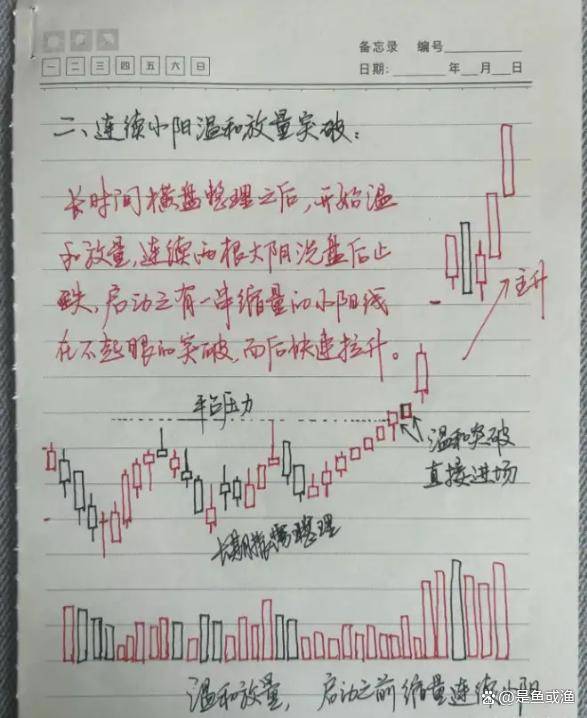 备忘录 编号
一 二 三 四 五 六 日
日期: 年 月 日
二、连续小阳温和放量突破:
长时间横盘整理之后,开始温
和放量,连续两根大阴洗盘后止
跌,启动之有一串缩量的小阳线
在不起眼的突破,而后快速拉升。
主升
平台压力
温和突破
直接进场
长期横盘整理
温和放量, 启动之前缩量连续小阳
@是鱼或渔